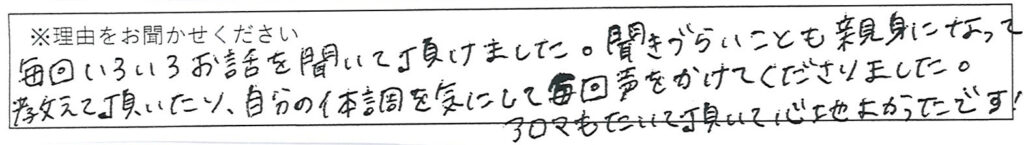 ※理由をお聞かせください
毎回いろいろお話を聞いて頂けました。聞きづらいことも親身になって
教えて頂いたり、自分の体調を気にして毎回声をかけてくださりました。
アロマもたいて頂いて心地よかったです!